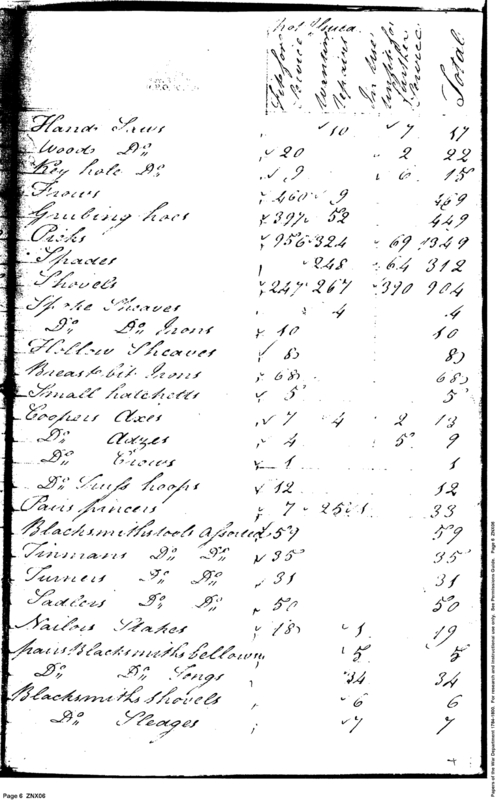 Fit for Service
Wanting repairs
In Use
unfit for further Service
Total
Hand Saws 10 7 17
Wood Do 20 2 22
Key hole Do 9 6 15
Frows 460 9 469
Grubing hoes 397 52 449
Picks 956 324 69 1349
Spades 248 64 312
Shovels 247 267 390 904
Spoke Sheaves 4 4
Do Do Irons 10 10
Hollow Sheaves 8 8
Breast bit Irons 68 68
Small hatchetts 5 5
Coopers Axes 7 4 2 13
Do Adzes 4 5 9
Do Crows 1 1
Do Truss hoops 12 12
Pairs pincers 7 25 1 33
Blacksmiths tools assorted 59 59
Tinmans Do Do 35 35
Turners Do Do 31 31
Sadlers Do Do 50 50
Nailors Stakes 18 1 19
pairs Blacksmiths bellows 5 5
Do Do Tongs 34 34
Blacksmiths shovels 6 6
Do Sleages 7 7
Page 6 ZNX06
Papers of the War Department 1784-1800. For research and instructional use only. See Permissions Guide. Page 6 ZNX06